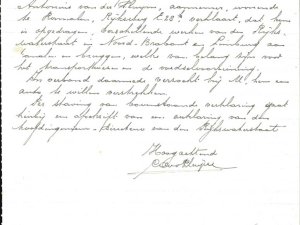 Antonius van der Heijden, aannemer, wonende
te Rijksweg verklaart, dat hem
is opgedragen, verschillende werken van den Rijks-
waterstaat in Noord-Brabant en Limburg aan
kanalen en bruggen, welke van belang zijn voor
het transportwezen en de voedselvoorziening.
In verband daarmede verzoekt hij U. hem een
auto te willen verstrekken.
Ter staving van bovenstaande verklaring gaat
hierbij een afschrift van een verklaring van den
hoofdingenieur-directeur van den Rijkswaterstaat
Hoogachtend